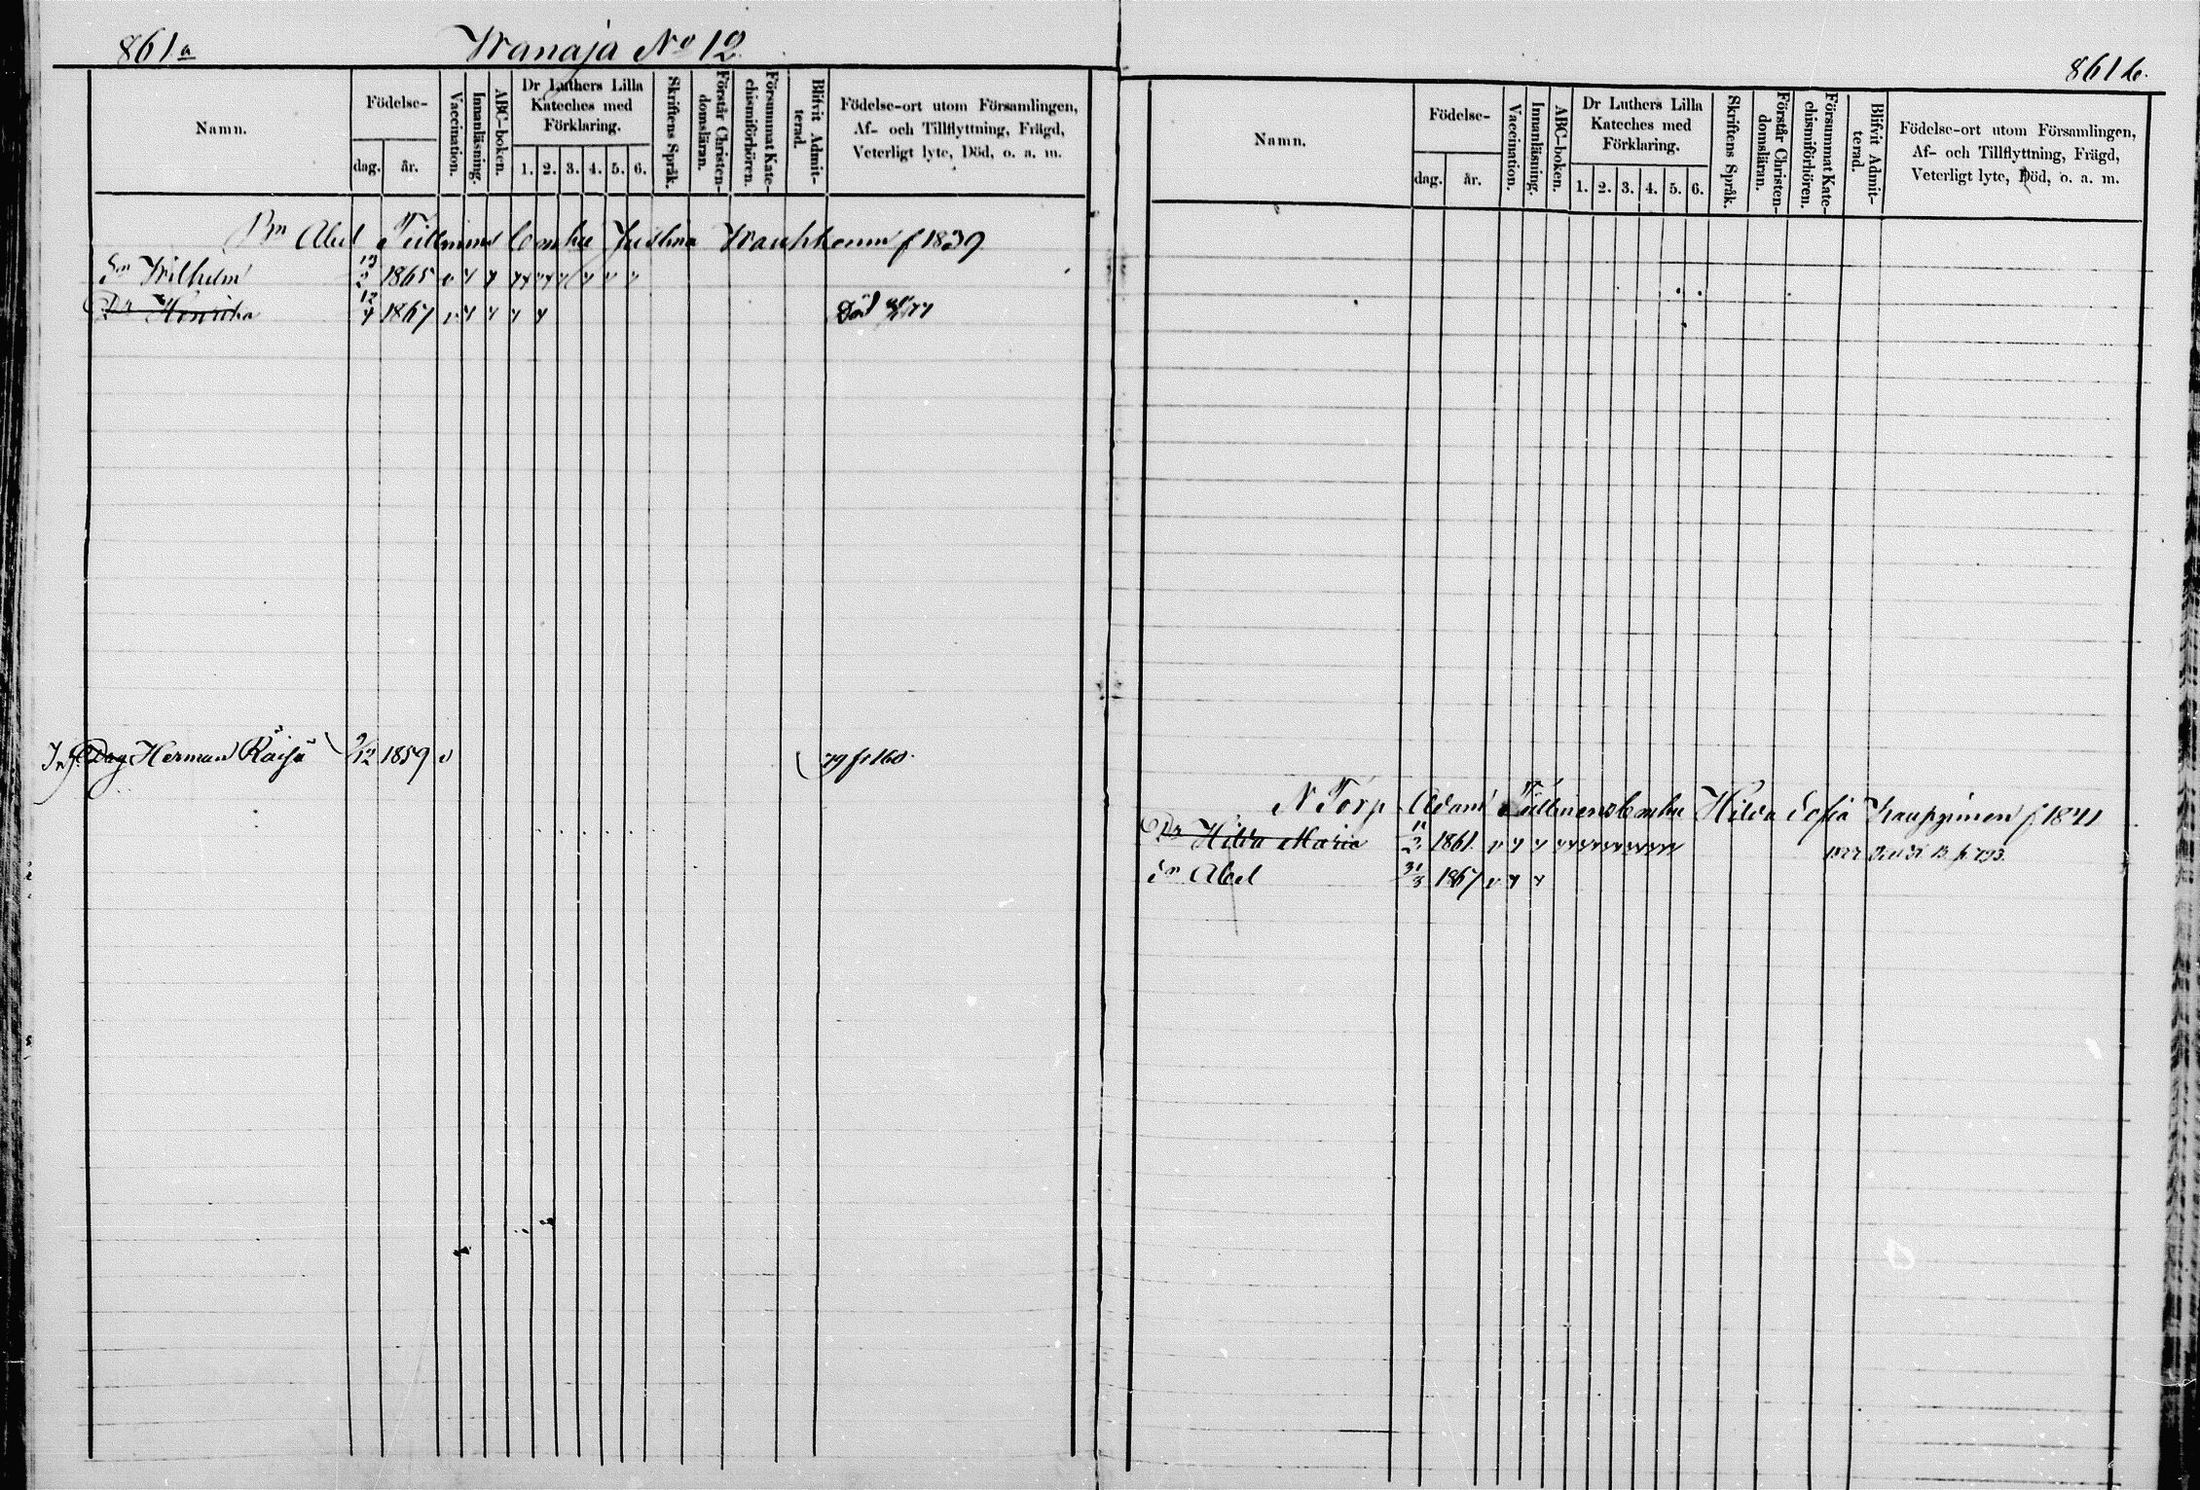 861.a Wanaja No 12.
Namn. Födelse- dag. år. Vaccination. Innanläsning. ABC-boken. Dr Luthers Lilla Kateches med Förklaring. 1. 2. 3. 4. 5. 6. Skriftens Språk. Förstår Christendomsläran. Försummat Katechismiförhören. Blifvit Admitterad. Födelse-ort utom Församlingen, Af- och Tillflyttning, Frägd, Veterligt lyte, Död, o. a. m.
Bn Abel Justina f 1839
Sn Wilhelm 1865 v
Dr Henrika 12/4 1867 v Död
Inh. Drg Herman Räihä 9/12 1859 v 79 fr 160.
861 b.
Namn. Födelse- dag. år. Vaccination. Innanläsning. ABC-boken. Dr Luthers Lilla Kateches med Förklaring. 1. 2. 3. 4. 5. 6. Skriftens Språk. Förstår Christendomsläran. Försummat Katechismiförhören. Blifvit Admitterad. Födelse-ort utom Församlingen, Af- och Tillflyttning, Frägd, Veterligt lyte, Död, o. a. m.
N Torp Adam Hilda Sofia Kauppinen f 1841
Dr Hilda Maria 1861 v
Sn Abel 31/3 1867 v